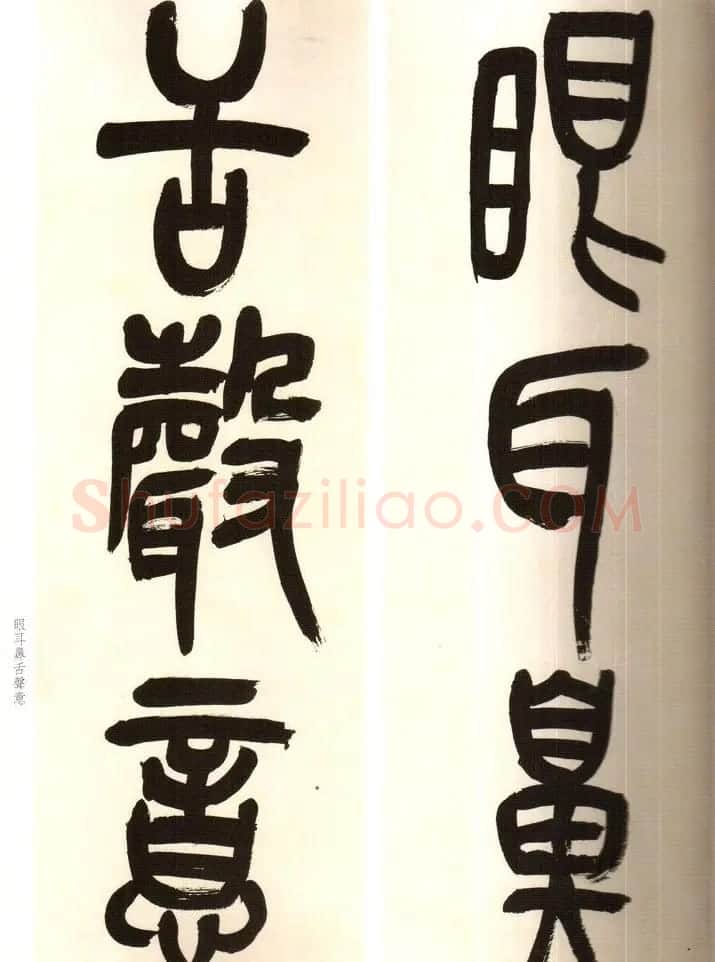 眼耳鼻
舌聲意
眼耳鼻舌聲意
Shufaziliao.COM